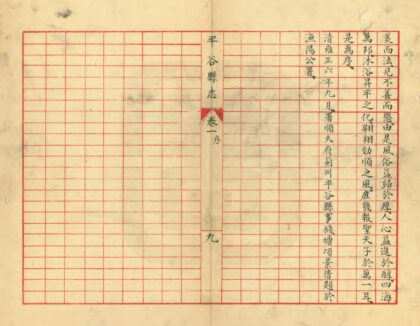 美而法見不善而懲由是風俗益歸於厚人心益進於醇四海
萬邦沐浴昇平之化翱翔効順之風庶幾報聖天子於萬一耳
是為序
清雍正六年九月署順天府薊州平谷縣事錢塘項景倩題於
漁陽公署
平谷縣志
卷一 序
九